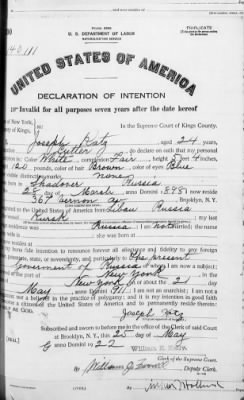 TRIPLICATE
U. S. DEPARTMENT OF LABOR
NATURALIZATION SERVICE
UNITED STATES OF AMERICA
DECLARATION OF INTENTION
Invalid for all purposes seven years after the date hereof
of New York,
of Kings,
In the Supreme Court of Kings County.
Joseph Katz, aged 24 years,
Cutter, do declare on oath that my personal
is: Color White, complexion Fair, height 5 feet 4 inches,
120 pounds, color of hair Brown, color of eyes Blue
distinctive marks none
Russia
28 day of March, anno Domini 1; I now reside
367 Vernon Av, Brooklyn, N.Y.
to the United States of America from Libau Russia
my last
residence was Russia; I am not married; the name
she was born
my bona fide intention to renounce forever all allegiance and fidelity to any foreign
state, or sovereignty, and particularly to The present
Government of Russia of whom I am now a subject;
at the port of New York, in the
New York, on or about the 2 day
May, anno Domini 1911; I am not an anarchist; I am not a
nor a believer in the practice of polygamy; and it is my intention in good faith
a citizen of the United States of America and to permanently reside therein:
GOD.
Joseph Katz
Subscribed and sworn to before me in the office of the Clerk of said Court
at Brooklyn, N.Y., this 25 day of May
anno Domini 1922
William E. Kelly,
Clerk of the Supreme Court.
By William J.
Deputy Clerk.